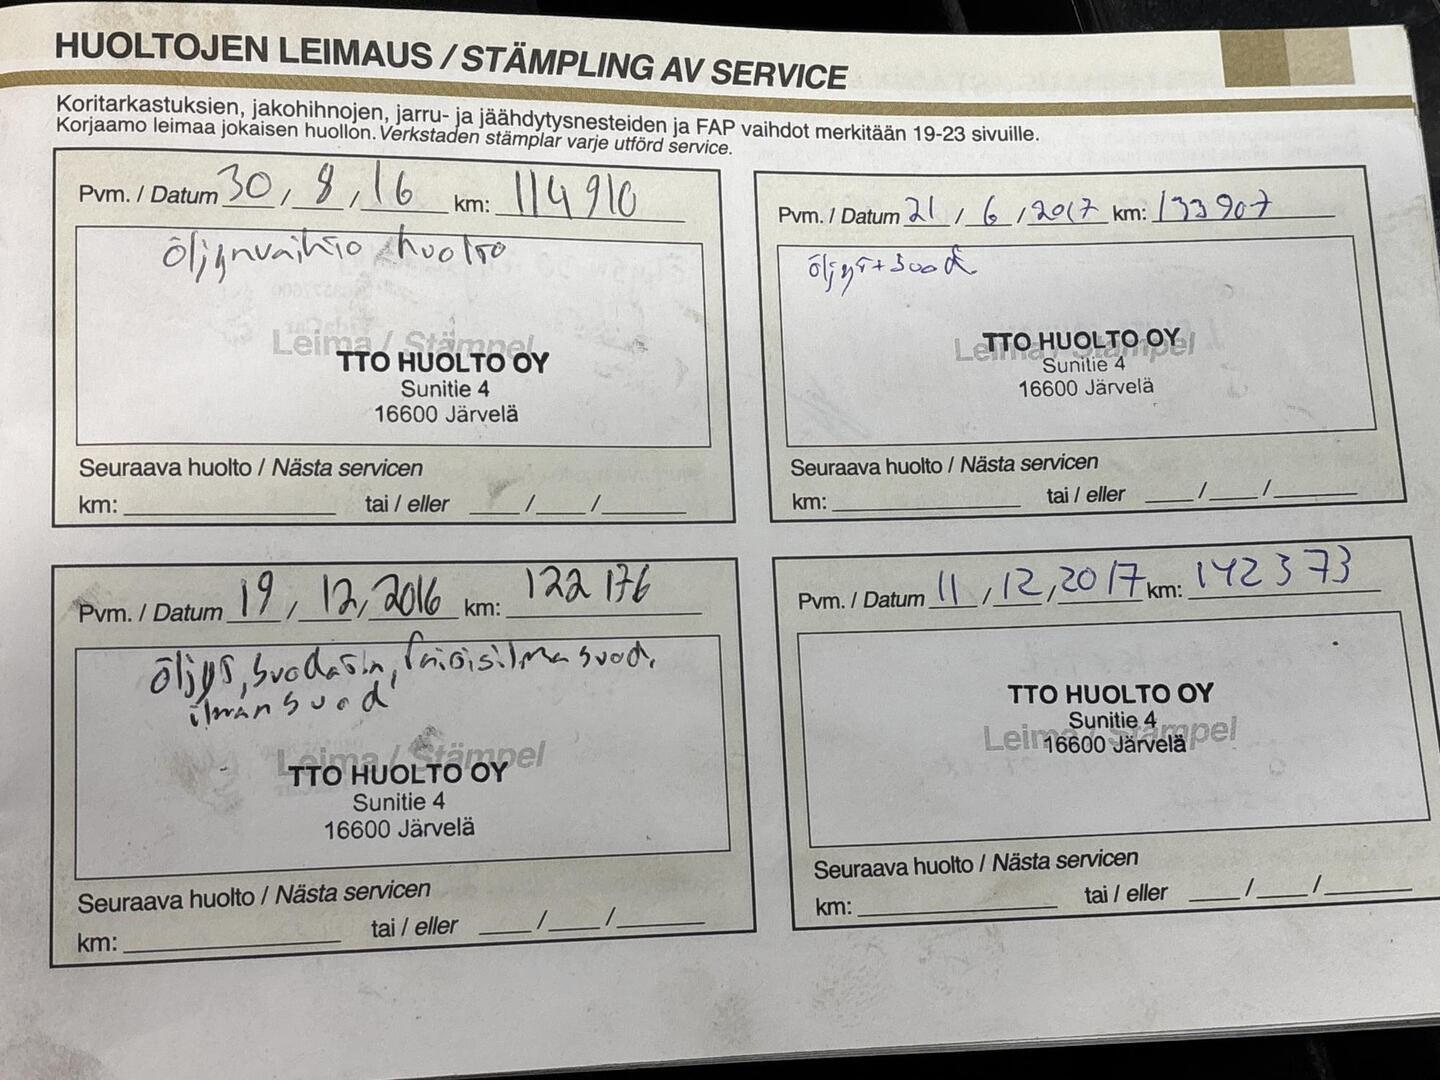 HUOLTOJEN LEIMAUS / STÄMPLING AV SERVICE
Koritarkastuksien, jakohihnojen, jarru- ja jäähdytysnesteiden ja FAP vaihdot merkitään 19-23 sivuille.
Korjaamo leimaa jokaisen huollon. Verkstaden stämplar varje utförd service.
Pvm. / Datum 30 / 8 / 16 km: 114 910
öljynvaihto huolto
Leima / Stämpel
TTO HUOLTO OY
Sunitie 4
16600 Järvelä
Seuraava huolto / Nästa servicen
km: tai / eller / /
Pvm. / Datum 19 / 12 / 2016 km: 122 176
öljyt, suodatin, raitisilma suod,
ilman suod
Leima / Stämpel
TTO HUOLTO OY
Sunitie 4
16600 Järvelä
Seuraava huolto / Nästa servicen
km: tai / eller / /
Pvm. / Datum 21 / 6 / 2017 km: 133 907
öljyt + suod
Leima / Stämpel
TTO HUOLTO OY
Sunitie 4
16600 Järvelä
Seuraava huolto / Nästa servicen
km: tai / eller / /
Pvm. / Datum 11 / 12 / 2017 km: 142 373
TTO HUOLTO OY
Sunitie 4
Leima / Stämpel
16600 Järvelä
Seuraava huolto / Nästa servicen
km: tai / eller / /